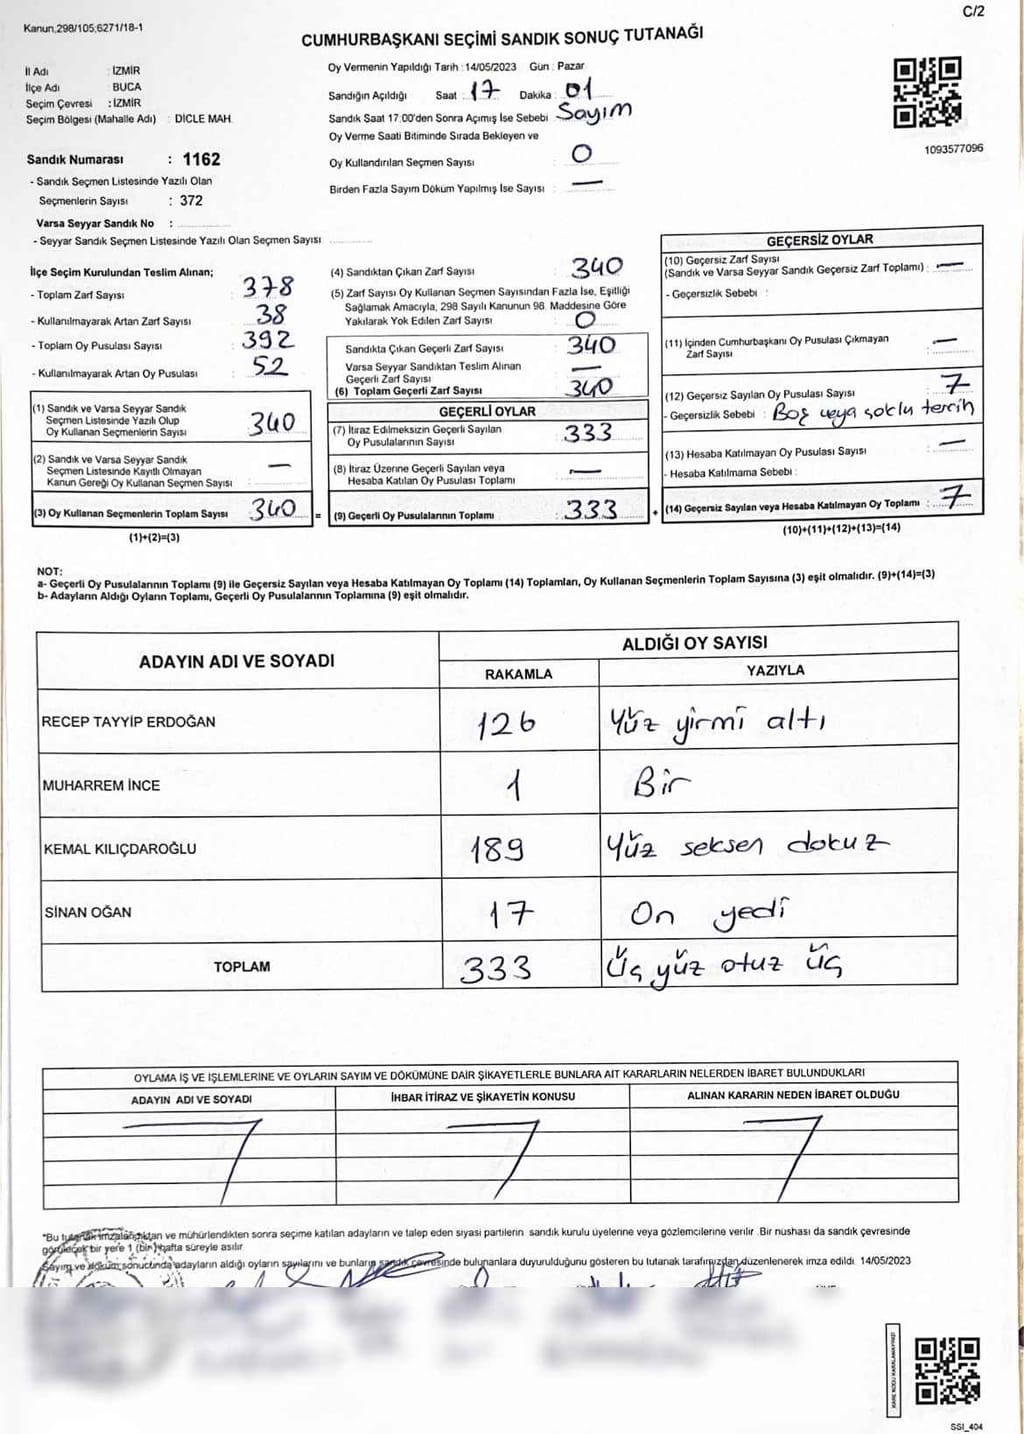 C/2
Kanun,298/105;6271/18-1
CUMHURBAŞKANI SEÇİMİ SANDIK SONUÇ TUTANAĞI
İl Adı : İZMİR
İlçe Adı : BUCA
Seçim Çevresi : İZMİR
Seçim Bölgesi (Mahalle Adı) : DİCLE MAH.
Sandık Numarası : 1162
- Sandık Seçmen Listesinde Yazılı Olan
Seçmenlerin Sayısı : 372
Varsa Seyyar Sandık No :
- Seyyar Sandık Seçmen Listesinde Yazılı Olan Seçmen Sayısı
Oy Vermenin Yapıldığı Tarih : 14/05/2023 Gün : Pazar
Sandığın Açıldığı Saat : 17 Dakika : 01
Sandık Saat 17:00'den Sonra Açımış İse Sebebi : Sayım
Oy Verme Saati Bitiminde Sırada Bekleyen ve
Oy Kullandırılan Seçmen Sayısı : 0
Birden Fazla Sayım Döküm Yapılmış İse Sayısı : —
1093577096
İlçe Seçim Kurulundan Teslim Alınan;
- Toplam Zarf Sayısı : 378
- Kullanılmayarak Artan Zarf Sayısı : 38
- Toplam Oy Pusulası Sayısı : 392
- Kullanılmayarak Artan Oy Pusulası : 52
(1) Sandık ve Varsa Seyyar Sandık
Seçmen Listesinde Yazılı Olup
Oy Kullanan Seçmenlerin Sayısı : 340
(2) Sandık ve Varsa Seyyar Sandık
Seçmen Listesinde Kayıtlı Olmayan
Kanun Gereği Oy Kullanan Seçmen Sayısı : —
(3) Oy Kullanan Seçmenlerin Toplam Sayısı : 340
(1)+(2)=(3)
(4) Sandıktan Çıkan Zarf Sayısı : 340
(5) Zarf Sayısı Oy Kullanan Seçmen Sayısından Fazla İse, Eşitliği
Sağlamak Amacıyla, 298 Sayılı Kanunun 98. Maddesine Göre
Yakılarak Yok Edilen Zarf Sayısı : 0
Sandıkta Çıkan Geçerli Zarf Sayısı : 340
Varsa Seyyar Sandıktan Teslim Alınan
Geçerli Zarf Sayısı : —
(6) Toplam Geçerli Zarf Sayısı : 340
GEÇERLİ OYLAR
(7) İtiraz Edilmeksizin Geçerli Sayılan
Oy Pusulalarının Sayısı : 333
(8) İtiraz Üzerine Geçerli Sayılan veya
Hesaba Katılan Oy Pusulası Toplamı : —
= (9) Geçerli Oy Pusulalarının Toplamı : 333
GEÇERSİZ OYLAR
(10) Geçersiz Zarf Sayısı
(Sandık ve Varsa Seyyar Sandık Geçersiz Zarf Toplamı) : —
- Geçersizlik Sebebi :
(11) İçinden Cumhurbaşkanı Oy Pusulası Çıkmayan
Zarf Sayısı : —
(12) Geçersiz Sayılan Oy Pusulası Sayısı : 7
- Geçersizlik Sebebi : Boş veya çoklu tercih
(13) Hesaba Katılmayan Oy Pusulası Sayısı : —
- Hesaba Katılmama Sebebi :
+ (14) Geçersiz Sayılan veya Hesaba Katılmayan Oy Toplamı : 7
(10)+(11)+(12)+(13)=(14)
NOT:
a- Geçerli Oy Pusulalarının Toplamı (9) ile Geçersiz Sayılan veya Hesaba Katılmayan Oy Toplamı (14) Toplamları, Oy Kullanan Seçmenlerin Toplam Sayısına (3) eşit olmalıdır. (9)+(14)=(3)
b- Adayların Aldığı Oyların Toplamı, Geçerli Oy Pusulalarının Toplamına (9) eşit olmalıdır.
ADAYIN ADI VE SOYADI ALDIĞI OY SAYISI
RAKAMLA YAZIYLA
RECEP TAYYİP ERDOĞAN 126 Yüz yirmi altı
MUHARREM İNCE 1 Bir
KEMAL KILIÇDAROĞLU 189 Yüz seksen dokuz
SİNAN OĞAN 17 On yedi
TOPLAM 333 Üç yüz otuz üç
OYLAMA İŞ VE İŞLEMLERİNE VE OYLARIN SAYIM VE DÖKÜMÜNE DAİR ŞİKAYETLERLE BUNLARA AİT KARARLARIN NELERDEN İBARET BULUNDUKLARI
ADAYIN ADI VE SOYADI İHBAR İTİRAZ VE ŞİKAYETİN KONUSU ALINAN KARARIN NEDEN İBARET OLDUĞU
*Bu tutanak imzalandıktan ve mühürlendikten sonra seçime katılan adayların ve talep eden siyasi partilerin sandık kurulu üyelerine veya gözlemcilerine verilir. Bir nushası da sandık çevresinde
görülecek bir yere 1 (bir) hafta süreyle asılır.
Sayım ve döküm sonucunda adayların aldığı oyların sayılarını ve bunların sandık çevresinde bulunanlara duyurulduğunu gösteren bu tutanak tarafımızdan düzenlenerek imza edildi. 14/05/2023
KARE KODU KARALAMAYINIZ!
SSI_404